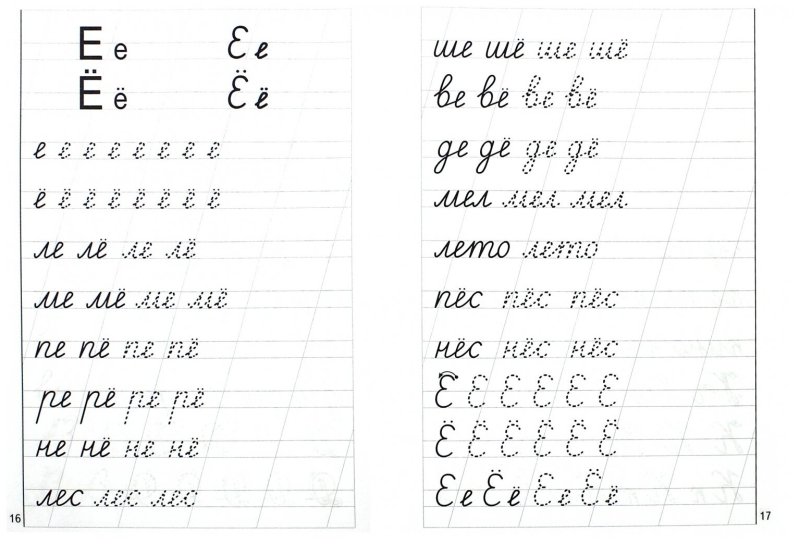 Е е Е е
Ё ё Ё ё
е е е е е е е е
ё ё ё ё ё ё ё ё
ле лё ле лё
ме мё ме мё
пе пё пе пё
ре рё ре рё
не нё не нё
лес лес лес
16
ше шё ше шё
ве вё ве вё
де дё де дё
мел мел мел
лето лето
пёс пёс пёс
нёс нёс нёс
Е Е Е Е Е Е
Ё Ё Ё Ё Ё Ё
Е е Ё ё Е е Ё ё
17